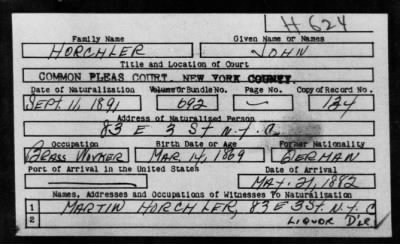 H 624
Family Name Given Name or Names
HORCHLER JOHN
Title and Location of Court
COMMON PLEAS COURT, NEW YORK COUNTY.
Date of Naturalization Volume Or Bundle No. Page No. Copy of Record No.
SEPT. 11, 1891 692 — 134
Address of Naturalized Person
83 E 3 St N.Y.C
Occupation Birth Date or Age Former Nationality
BRASS WORKER MAR. 14, 1869 GERMAN
Port of Arrival in the United States Date of Arrival
— MAY. 21, 1882
Names, Addresses and Occupations of Witnesses To Naturalization
1 MARTIN HORCHLER, 83 E 3 St. N.Y. C
2 LIQUOR D'LR